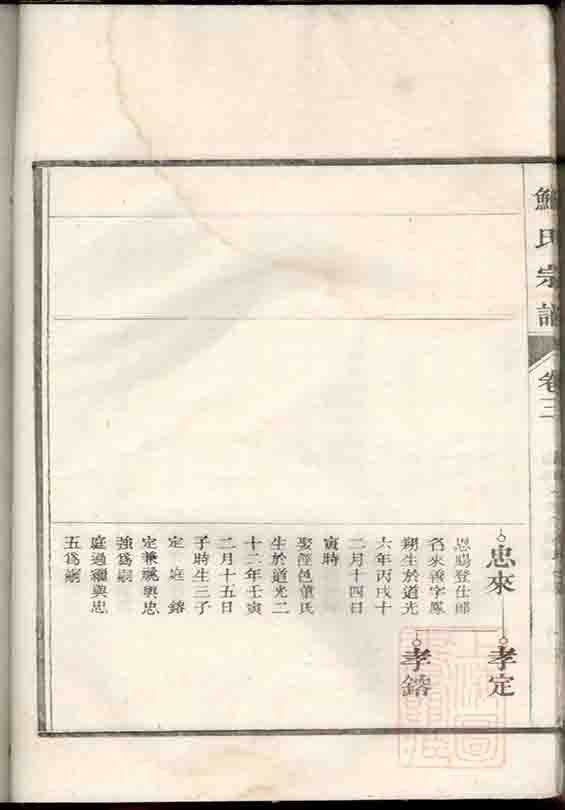 鮑氏宗譜
卷三
忠來
孝定
孝鎔
恩賜登仕郎
名來儀字鳳
翔生於道光
六年丙戌十
二月十四日
寅時
娶涇邑董氏
生於道光二
十二年壬寅
二月十五日
子時生三子
定 庭 鎔
定兼祧與忠
強爲嗣
庭過繼與忠
五爲嗣